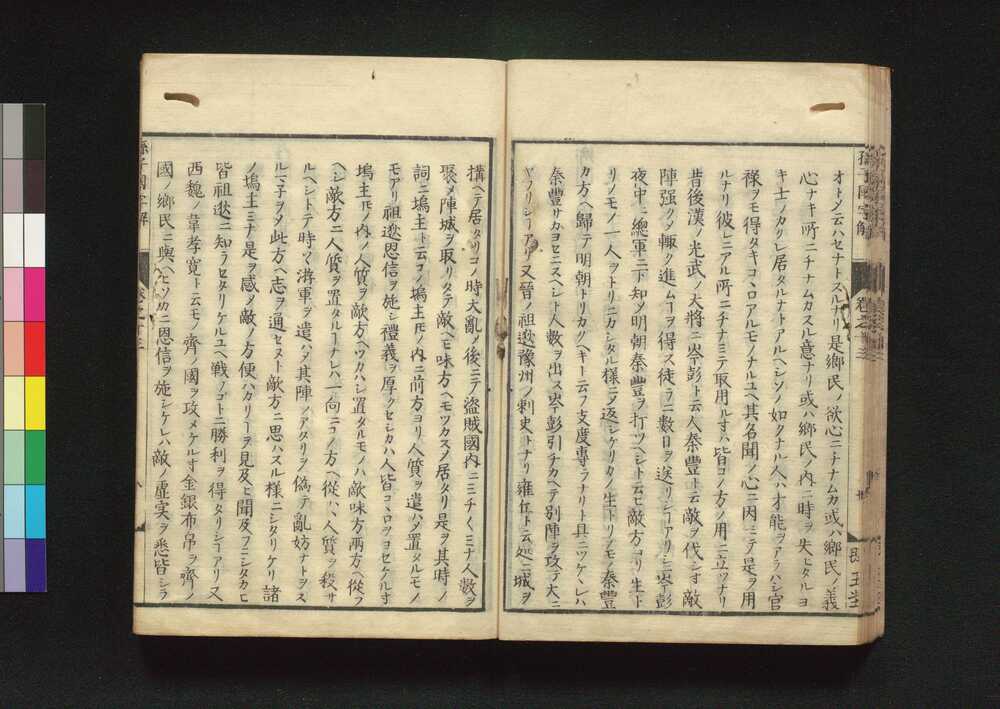 オトノ云ハセナトスルナリ是鄕民ノ欲心ニチナムカ或ハ鄕民ノ義
心ナキ所ニチナムカスル意ナリ或ハ鄕民ノ内ニ時ヲ失ヒタルヨ
キ士ノカクレ居タルナトアルヘシソノ如クナル人ハオ能ヲアラハシ官
禄ヲモ得タキコヽロアルモノナルユヘ其名聞ノ心ニ因ミテ是ヲ用
ルナリ彼ニアル所ニチナミテ取用ルヿハ皆コノ方ノ用ニ立ツナリ
昔後漢ノ光武ノ大將ニ岑彭ト云人秦豊ト云敵ヲ伐シ寸敵
陣强クメ輙ク進ムヿヲ得ス徒ラニ數日ヲ送リシヿアリシニ岑彭
夜中ニ總軍ニ下知メ明朝秦豊ヲ打ツヘシト云ヒ敵方ヨリ生ト
リノモノ一人ヲトリニカシタル様ニメ返シケリカノ生トリノモノ秦豊
カ方ヘ歸テ明朝トリカクヘキト云フ支度專ラナリト具ニツケシハ
秦豊サカヨセニスヘシト人數ヲ出ス岑彭引チカヘテ別陣ヲ攻テ大ニ
ヤフリシヿアリ又晉ノ祖逖豫州ノ刺史トナリ雍丘ト云処ニ城ヲ
構ヘテ居タリコノ時大亂ノ後ニテ盗賊國内ニミチ〱ミナ人數ヲ
聚メ陣城ヲ取リタテ敵ヘモ味方ヘモツカスメ居タリ是ヲ其時ノ
詞ニ塢主ト云コノ塢主𪜈ノ内ニ前方ヨリ人質ヲ遣ハメ置タルモノ
モアリ祖逖恩信ヲ施シ禮義ヲ厚クセシカハ人皆コヽロヲヨセケル寸
塢主𪜈ノ内ノ人質ヲ敵方ヘツカハシ置タルモノハ敵味方兩方ヘ從フ
ヘシ敵方ニ人質ヲ置タルヿナレハ一向ニコノ方ヘ從ハヽ人質ヲ殺サ
ルヘシトテ時〻游軍ヲ遣ハメ其陣ノアタリヲ偽テ亂妨ナトヲス
ルマ子ヲメ此方ヘ志ヲ通セヌト敵方ニ思ハスル様ニシタリケリ諸
ノ塢主ミナ是ヲ感メ敵ノ方便ハカリヿヲ見及ヒ聞及フニシタカヒ
皆祖逖ニ知ラセタリケルユヘ戰ノゴトニ勝利ヲ得タリシヿアリ又
西魏ノ韋孝寛ト云モノ齊ノ國ヲ攻メケル寸金銀布帛ヲ齊ノ
國ノ鄕民ニ與ヘヒソカニ恩信ヲ施シケレハ敵ノ虚実ヲ悉皆シラ
孫子國字解
卷之十三